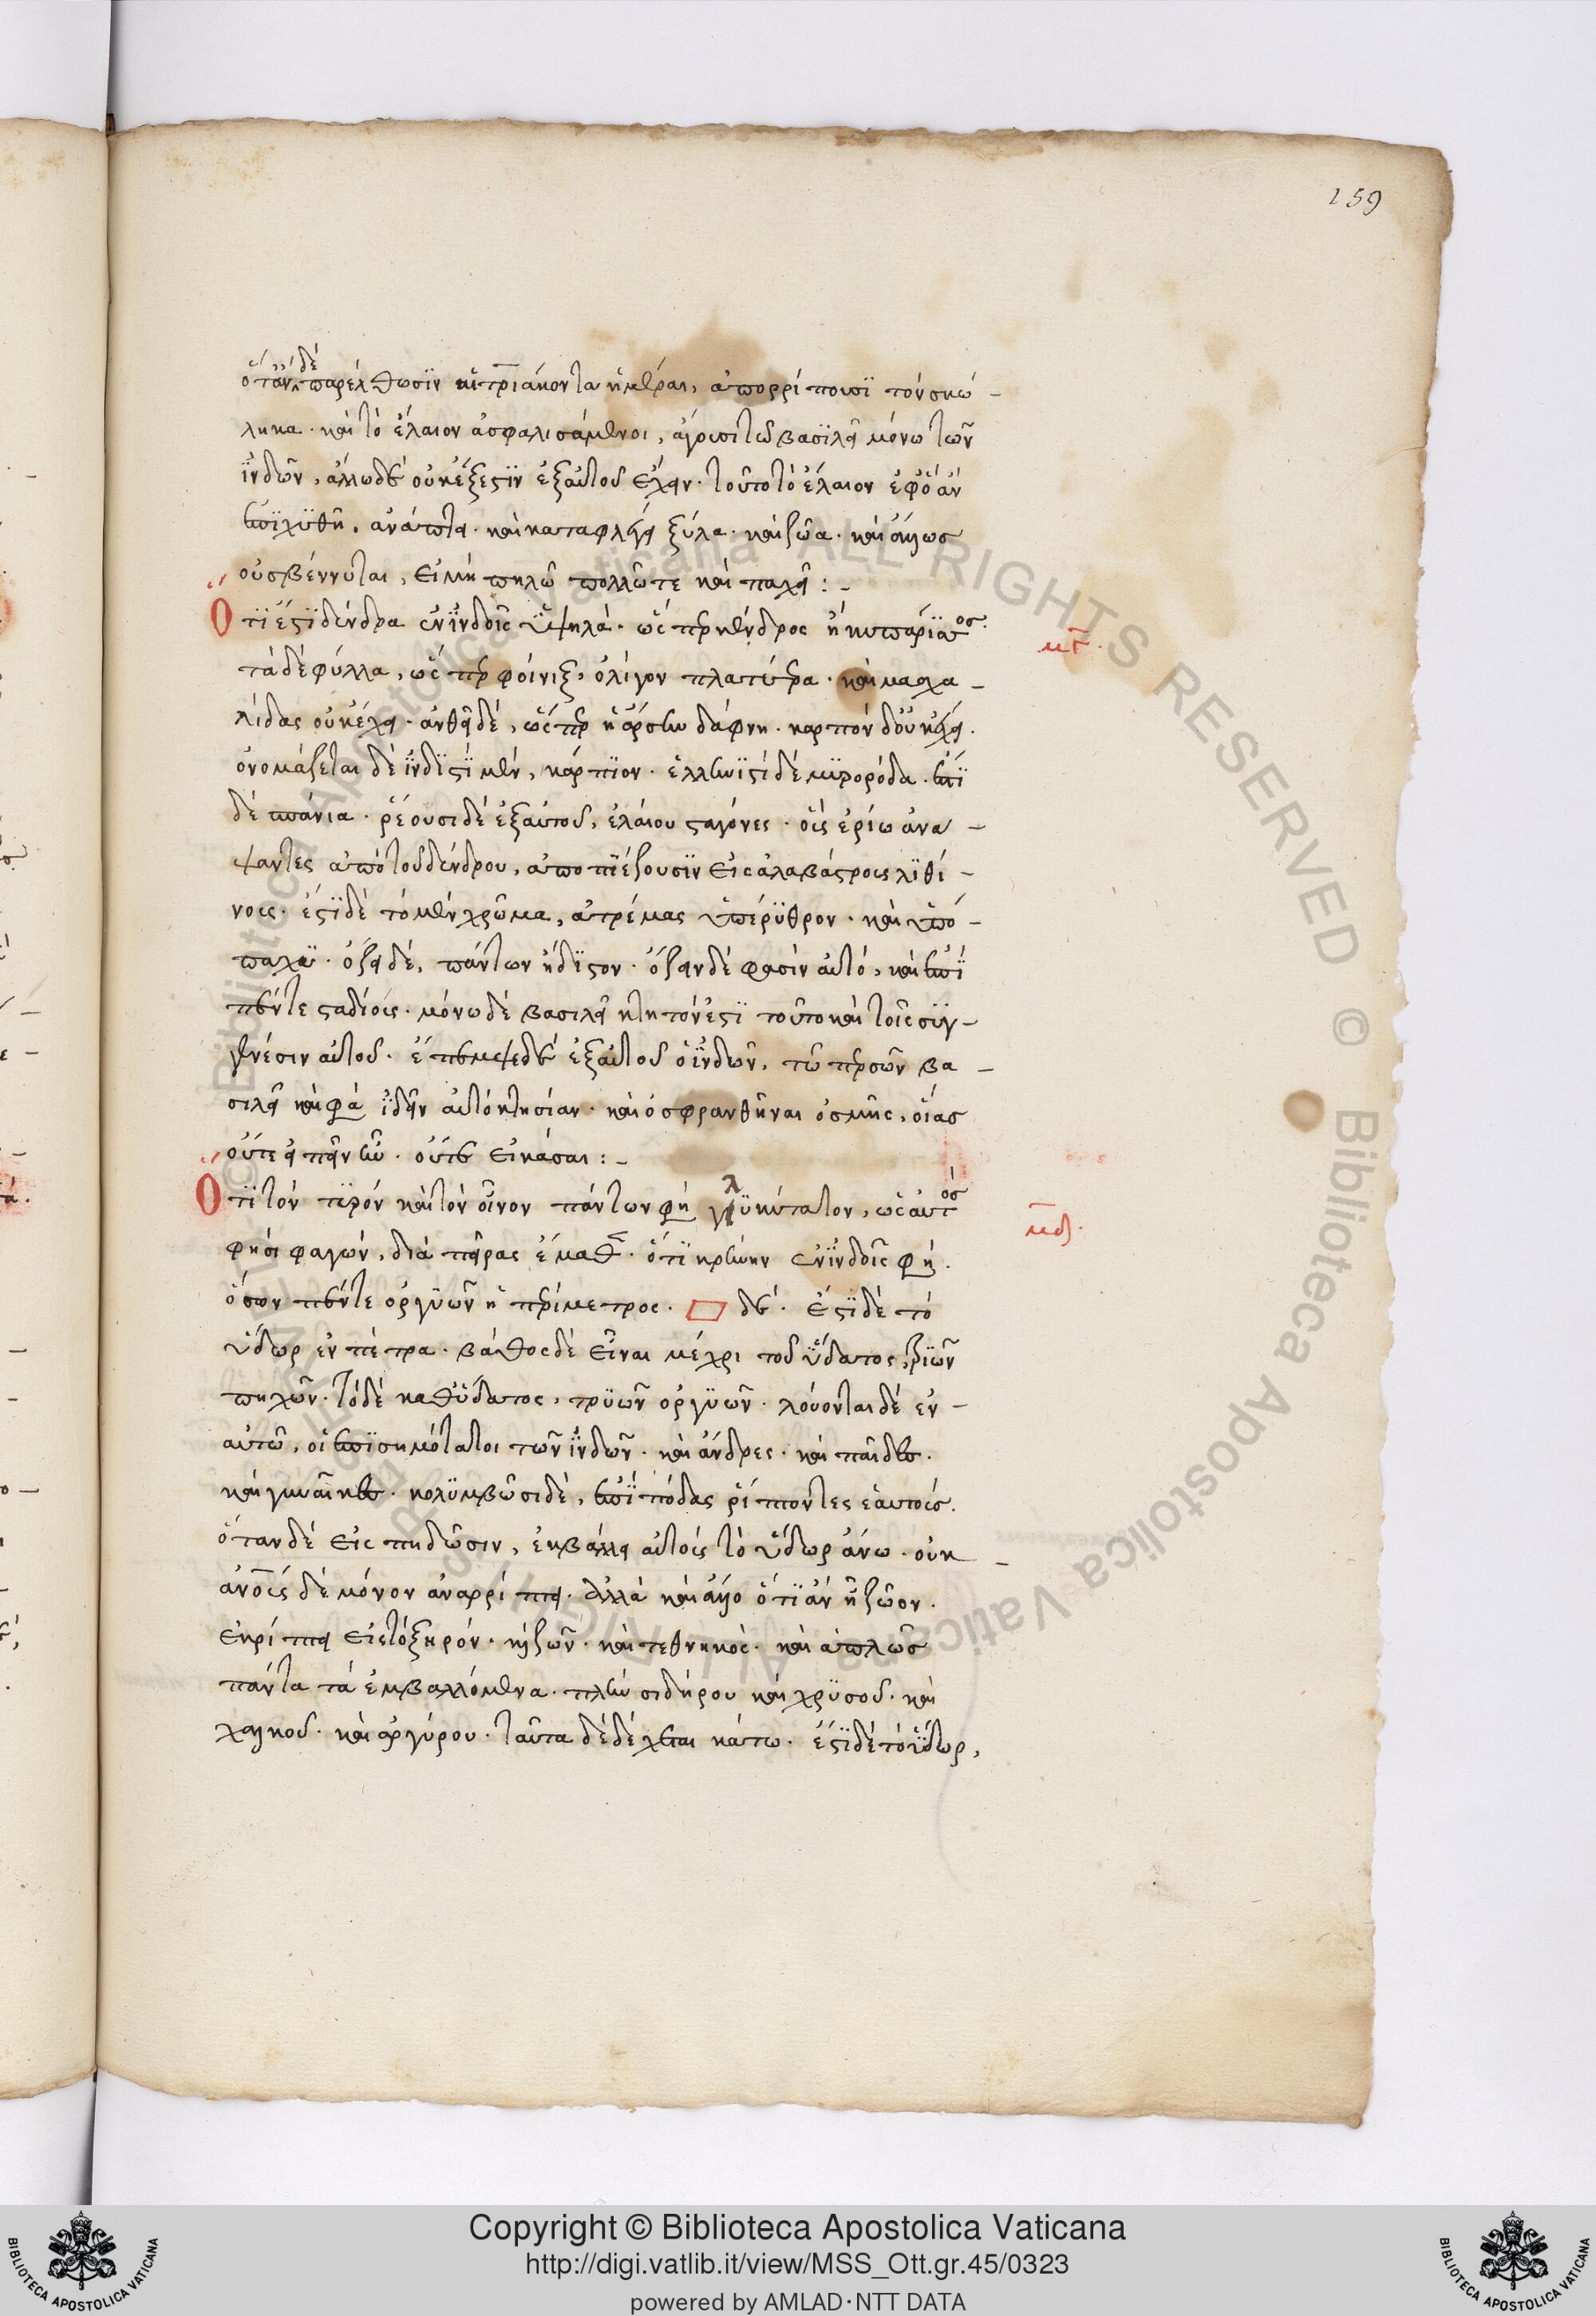 159
ὅταν δὲ παρέλθωσϊν αἱ τριάκοντα ἡμέραι, ἀπορρίπτουσϊ τὸν σκώ-
ληκα· καὶ τὸ ἔλαιον ἀσφαλισάμενοι, ἄγουσι τῶ βασϊλεῖ μόνω τῶν
ϊνδῶν, ἄλλω δὲ οὐκ ἔξεστϊν ἐξ αὐτοῦ ἔχειν· τοῦτο τὸ ἔλαιον ἐφ ὃ ἂν
ἐπϊχϋθῆ, ἀνάπτει· καὶ καταφλέγει ξύλα· καὶ ζῶα· καὶ ἄλλως
οὐ σβέννυται, εἰ μὴ πηλῶ πολλῶ τε καὶ παχεῖ:-
Οτϊ ἔστϊ δένδρα ἐν ϊνδοῖς ὑψηλὰ· ὥσπερ κέδρος ἢ κυπάρϊττος·
μγ·
τὰ δὲ φύλλα, ὥσπερ φοίνιξ, ὀλίγον πλατύτερα· καὶ μασχα-
λίδας οὐκ ἔχει· ἀνθεῖ δὲ, ὥσπερ ἡ ἄρσην δάφνη· καρπὸν δ οὐκ ἔχει·
ὀνομάζεται δὲ ϊνδϊστϊ μὲν, κάρπϊον· ἑλληνϊστὶ δὲ μϋρορόδα· ἔστϊ
δὲ σπάνια· ῥέουσι δὲ ἐξ αὐτοῦ, ἐλαίου σταγόνες· οἷς ἐρίω ἀνα-
ψαντες ἀπὸ τοῦ δένδρου, ἀποπϊέζουσϊν εἰς ἀλαβάστρους λϊθί-
νους· ἔστϊ δὲ τὸ μὲν χρῶμα, ἀτρέμας ὑπέρϋθρον· καὶ ὑπό-
παχϋ· ὄζει δὲ, πάντων ἥδϊστον· ὄζειν δὲ φασὶν αὐτὸ, καὶ ἐπϊ
πέντε σταδίοις· μόνω δὲ βασιλεῖ κτητόν ἐστϊ τοῦτο καὶ τοῖς συγ-
γενέσιν αὐτοῦ· ἔπεμψε δὲ ἐξ αὐτοῦ ὁ ϊνδῶν, τῶ περσῶν βα-
σιλεῖ καὶ φησὶ ϊδεῖν αὐτὸ κτησίαν· καὶ ὀσφρανθῆναι ὀσμῆς, οἵας
οὔτε εἰπεῖν ἦν· οὔτε εἰκάσαι:-
Οτϊ τὸν τϋρὸν καὶ τὸν οἶνον πάντων φησὶ γλϋκύτατον, ὡς αὐτὸς
μδ·
φησὶ φαγὼν, διὰ πείρας ἔμαθεν· ὅτϊ κρήνην ἐν ϊνδοῖς φησὶ·
ὅσον πέντε ὀργϋῶν ἡ περίμετρος· δέ· ἔστϊ δὲ τὸ
ὕδωρ ἐν πέτρα· βάθος δὲ εἶναι μέχρι τοῦ ὕδατος, τριῶν
πηχῶν· τὸ δὲ καθ ὕδατος, τρϋῶν ὀργϋῶν· λούονται δὲ ἐν-
αὐτῶ, οἱ ἐπϊσημότατοι τῶν ϊνδῶν· καὶ ἄνδρες· καὶ παῖδες·
καὶ γυναῖκες· κολϋμβῶσι δὲ, ἐπϊ πόδας ῥίπτοντες ἑαυτούς·
ὅταν δὲ εἰσπηδῶσιν, ἐκβάλλει αὐτοὺς τὸ ὕδωρ ἄνω· οὐκ
ἀνοὺς δὲ μόνον ἀναρρίπτει· ἀλλὰ καὶ ἄλλο ὅτϊ ἂν ἦ ζῶον·
ἐκρίπτει εἰς τὸ ξηρόν· καὶ ζῶν· καὶ τεθνηκὸς· καὶ ἁπλῶς
πάντα τὰ ἐμβαλλόμενα· πλὴν σιδήρου καὶ χρϋσοῦ· καὶ
χαλκοῦ· καὶ ἀργύρου· ταῦτα δὲ δέχεται κάτω· ἔστϊ δὲ τὸ ὕδωρ,
Copyright © Biblioteca Apostolica Vaticana
http://digi.vatlib.it/view/MSS_Ott.gr.45/0323
powered by AMLAD·NTT DATA
BIBLIOTECA APOSTOLICA VATICANA
BIBLIOTECA APOSTOLICA VATICANA